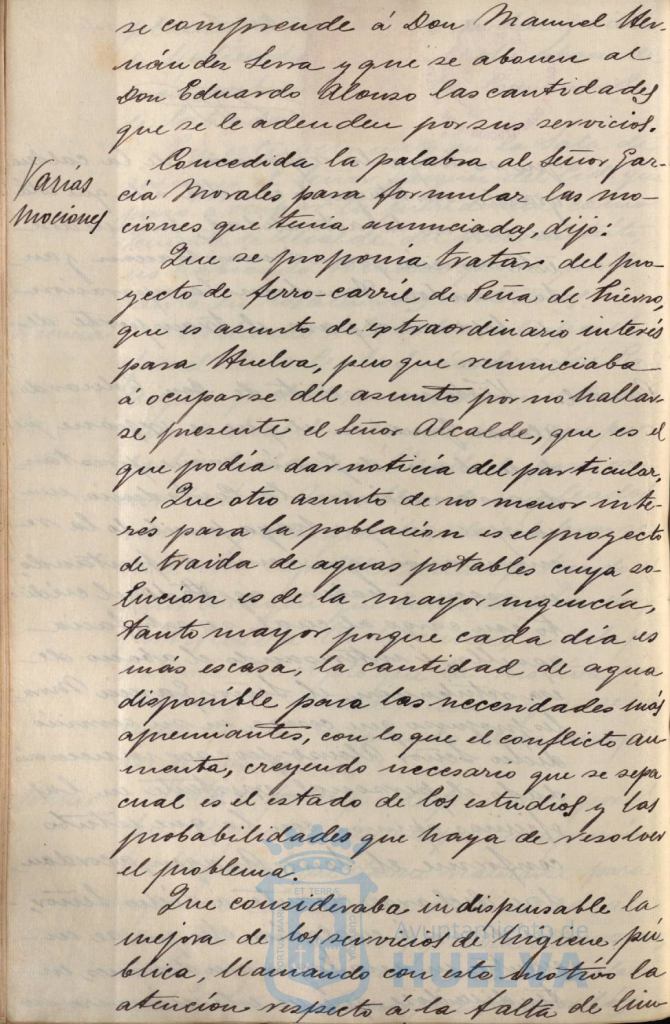 se comprende á Don Manuel Her-
nández Serra y que se abonen al
Don Eduardo Alonso las cantidades
que se le adeuden por sus servicios.
Varias
Mociones
Concedida la palabra al Señor Gar-
cía Morales para formular las mo-
ciones que tenia anunciadas, dijo:
Que se proponia tratar del pro-
yecto de ferro-carril de Peña de Hierro,
que es asunto de extraordinario interés
para Huelva, pero que renunciaba
á ocuparse del asunto por no hallar-
se presente el Señor Alcalde, que es el
que podía dar noticia del particular.
Que otro asunto de no menor inte-
rés para la población es el proyecto
de traida de aguas potables cuya so-
lucion es de la mayor urgencía,
tanto mayor porque cada día es
más escasa, la cantidad de agua
disponible para las necesidades más
apremiantes, con lo que el conflicto au-
menta, creyendo necesario que se sepa
cual es el estado de los estudios y las
probabilidades que haya de resolver
el problema.
Que consideraba indispensable la
mejora de los servicios de higiene pu-
blica, llamando con este motivo la
atencion respecto á la falta de lim
ET TERRÆ
Ayuntamiento de
HUELVA